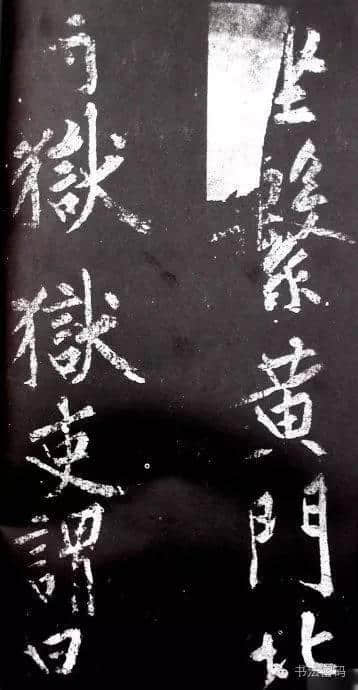 坐繫黄門北
寺獄獄吏謂曰
书法密码